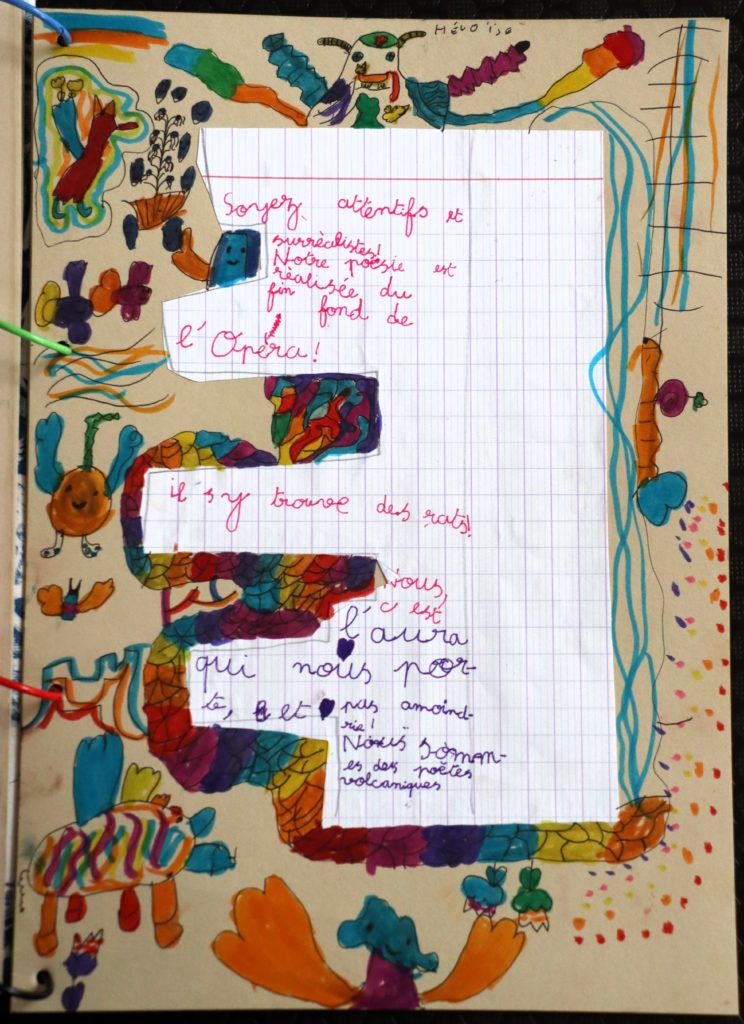 Héloïse
Soyez attentifs et
surréalistes!
Notre poèsie est
réalisée du
fin fond de
l'Opéra!
il s'y trouve des rats!
Nous,
c'est
l'aura
qui nous por-
te, et
pas amoind-
rie!
Noüs somm-
es des poëtes
volcaniques